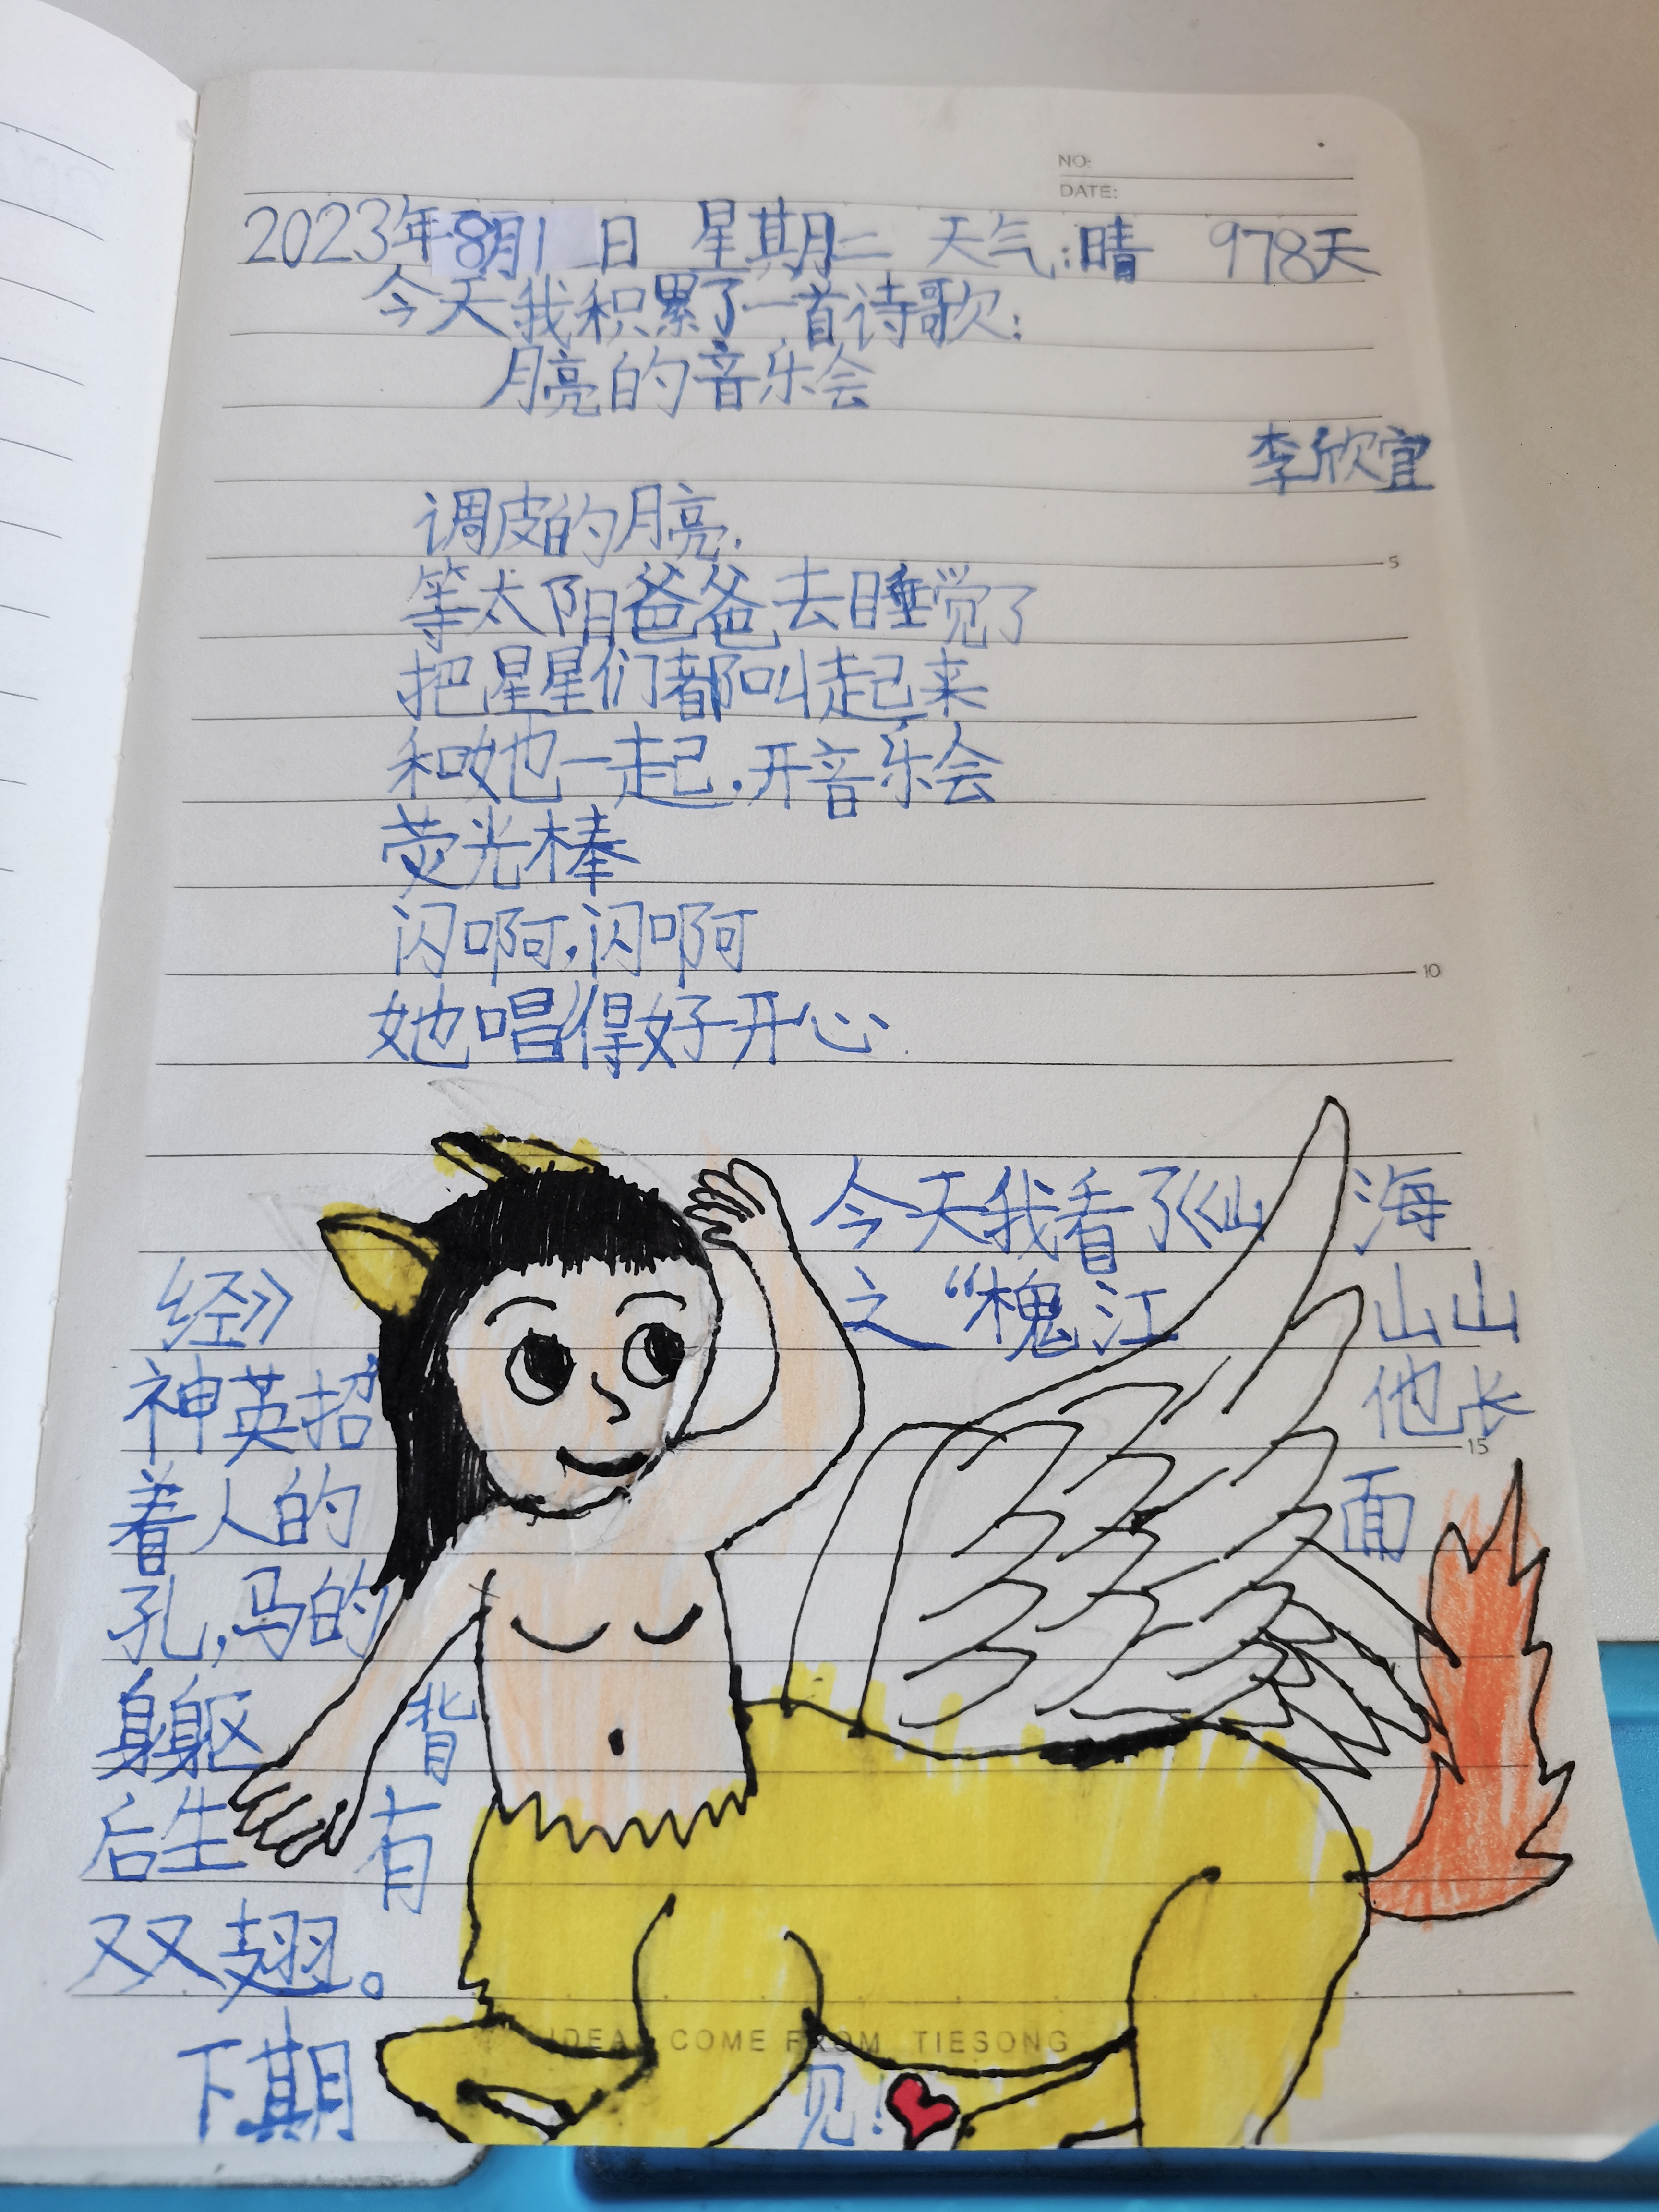 NO:
DATE:
2023年8月1日 星期二 天气:晴 978天
今天我积累了一首诗歌:
月亮的音乐会
李欣宜
调皮的月亮,
等太阳爸爸去睡觉了
5
把星星们都叫起来
和她一起,开音乐会
荧光棒
闪啊,闪啊
10
她唱得好开心
今天我看了《山海
经》之“槐江山山
神英招他长
15
着人的面
孔,马的
身躯背
后生有
双翅。
IDEA COME FROM TIESONG
下期见!